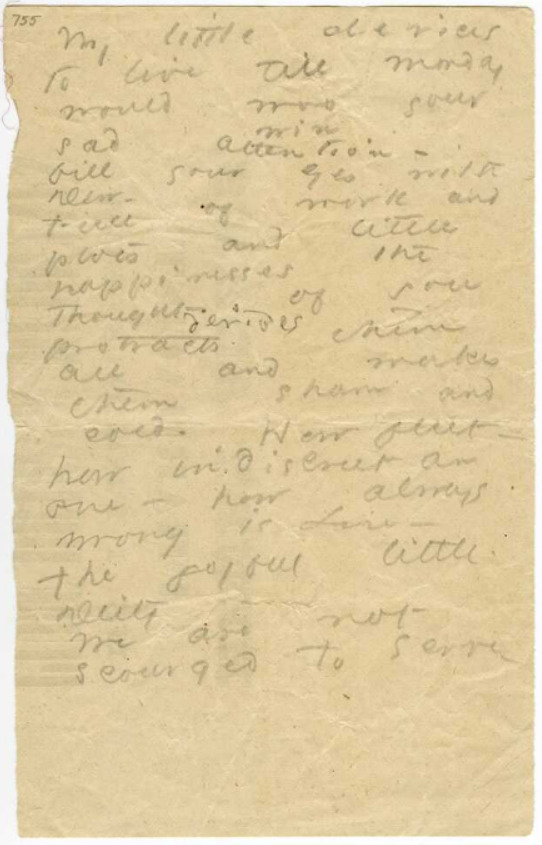 755
My little devices
to live till Monday
would woo your
win
sad attention -
fill your eyes with
Dew -
full of work and
plots and little
happinesses the
thought of you
derides
protracts them
all and makes
them sham and
cold. How fleet -
how indiscreet an
one - how always
wrong is Love -
the joyful little
Deity
We are not
scourged to serve